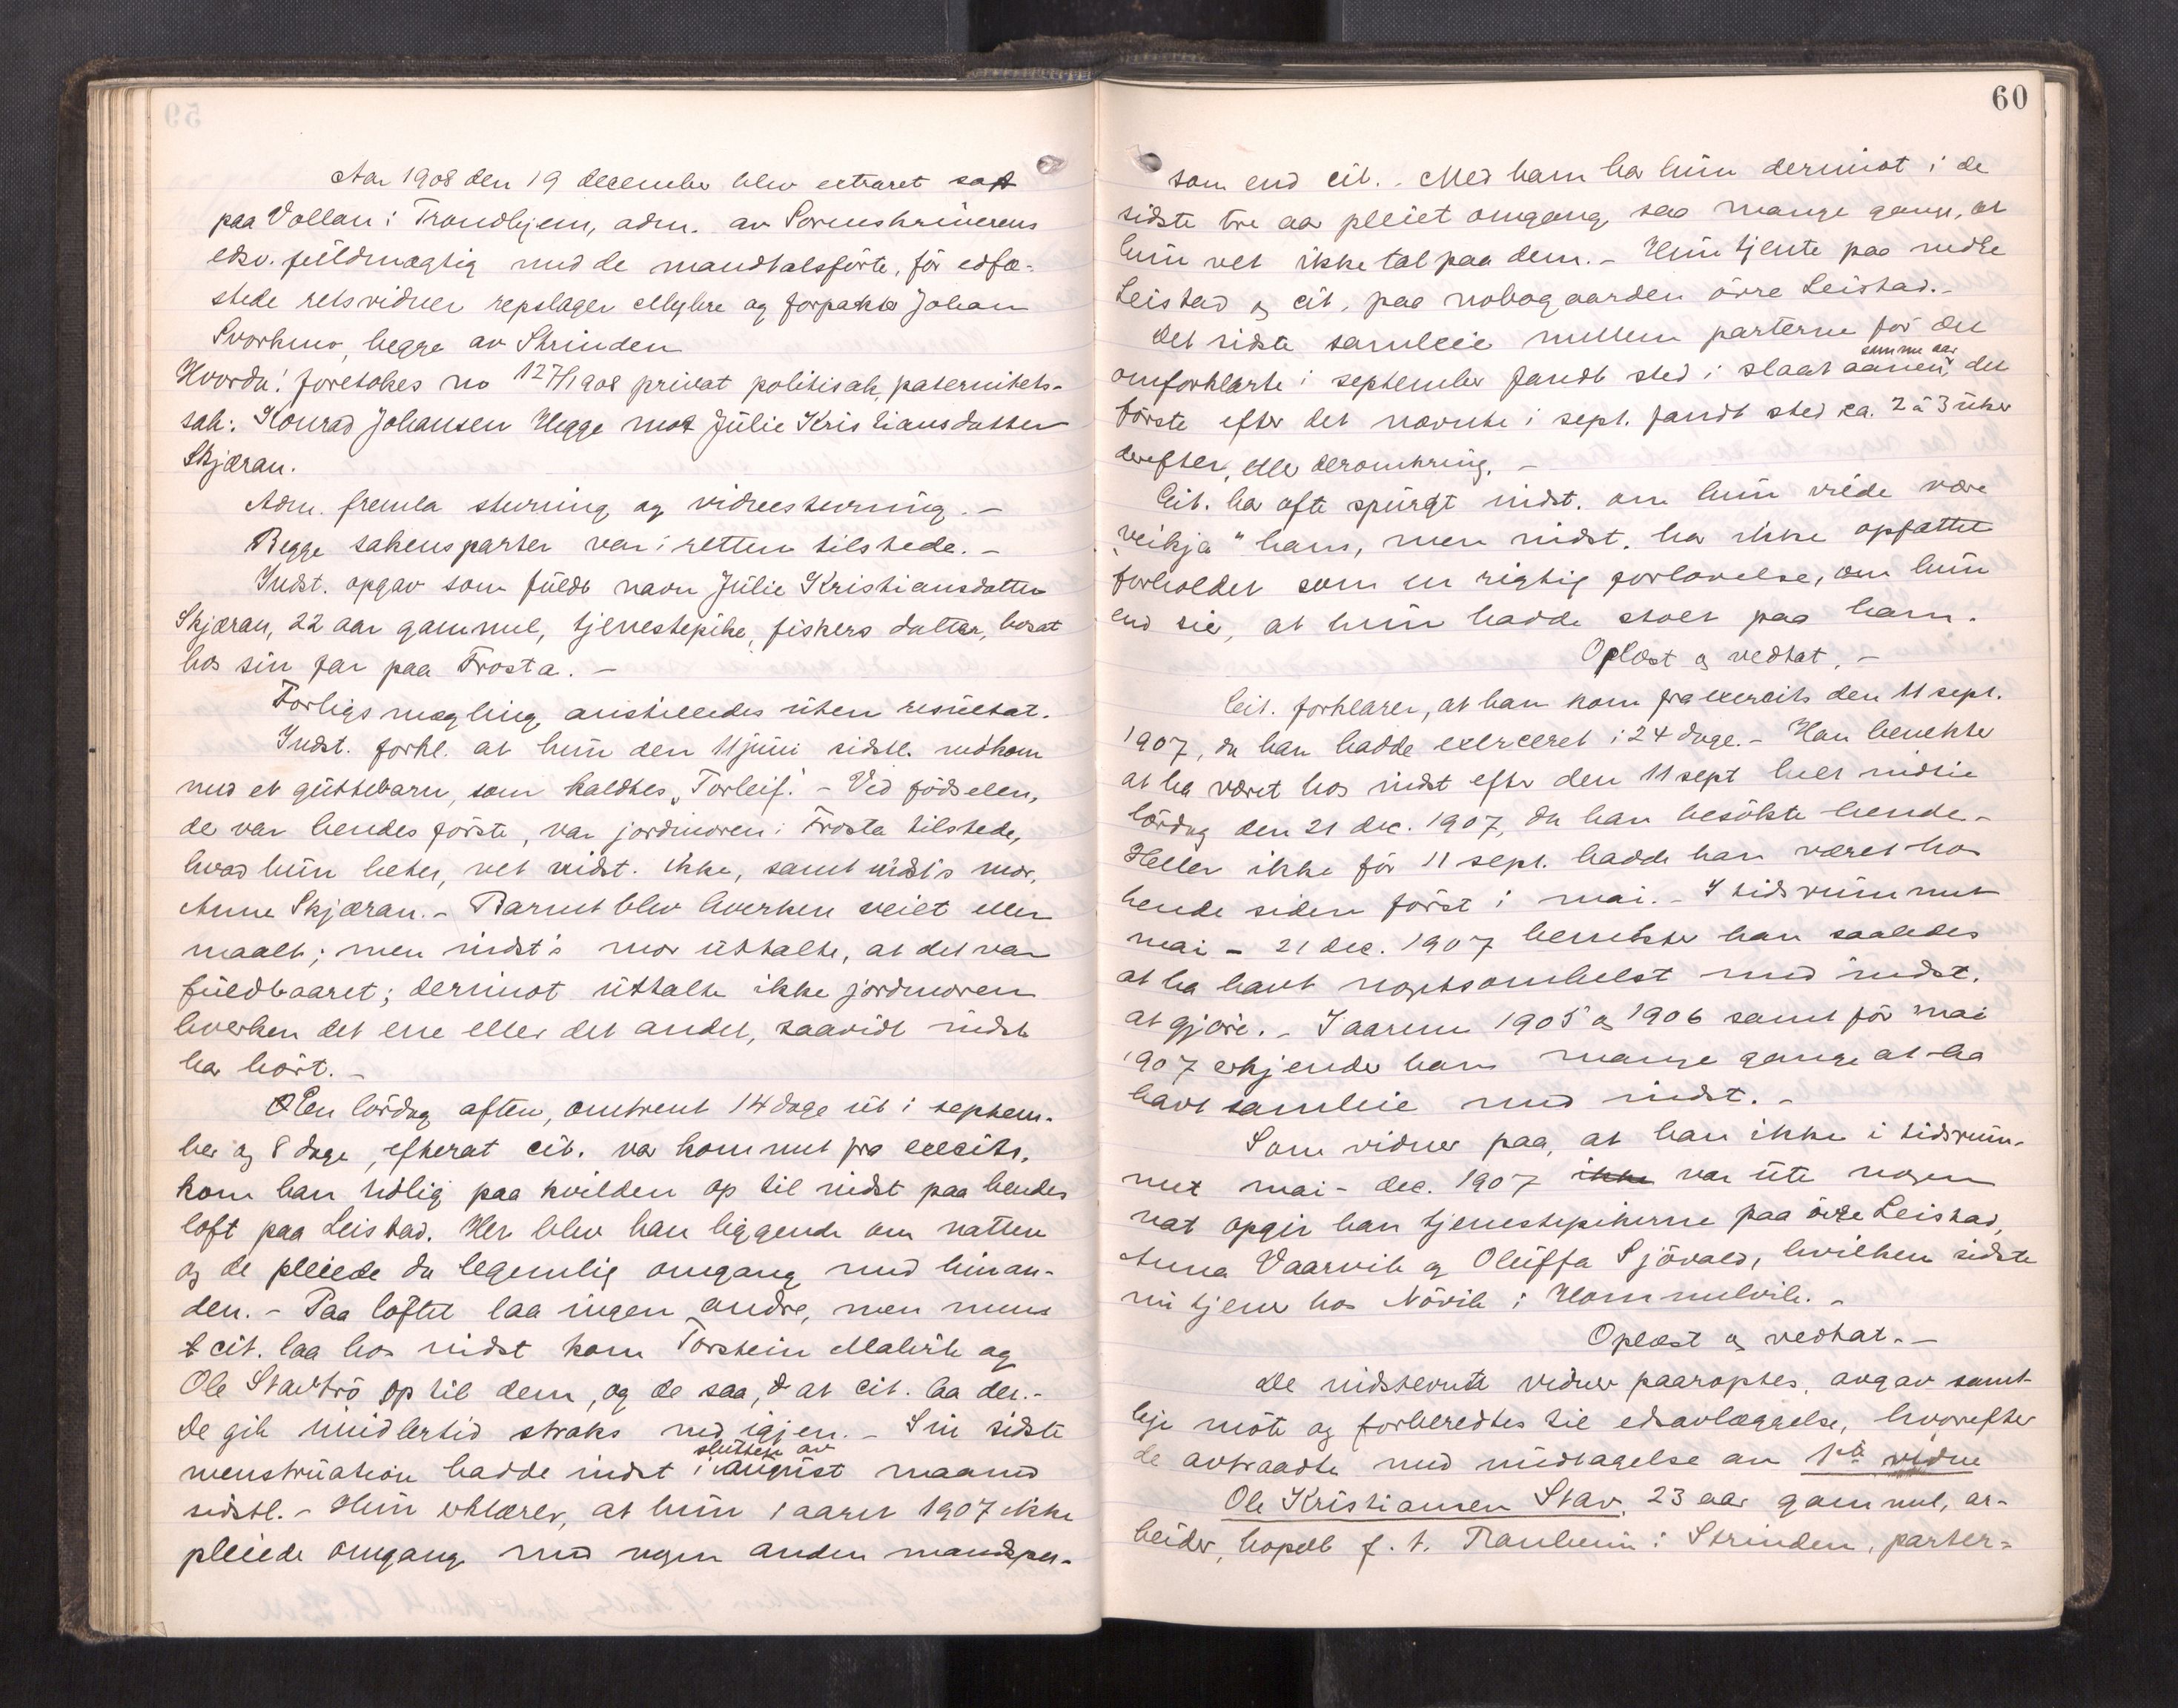 Aar 1908 den 19 december blev extraret sat
paa Vollan i Trondhjem, adm. av Sorenskriverens
edsv. fuldmægtig med de mandtalsførte, før edfæ-
stede retsvidner repslager Myhre og forpakter Johan
Svorkmo, begge av Strinden
Hvorda! foretokes no 127/1908 privat politisak, paternitets-
sak: Konrad Johansen Hegge mot Julie Kristiansdatter
Skjæran.
Adm. fremla stevning og vidnestevning. -
Begge sakens parter var i retten tilstede. -
Indst. opgav som fuldt navn Julie Kristiansdatter
Skjæran, 22 aar gammel, tjenestepike, fiskers datter, bosat
hos sin far paa Frosta. -
Forligsmægling anstilledes uten resultat.
Indst. forkl. at hun den 11 juni sidstl. nedkom
med et guttebarn, som kaldtes "Torleif". - Ved fødselen,
de var hendes første, var jordmoren i Frosta tilstede,
hvad hun heter, vet indst. ikke, samt indst's mor,
Anne Skjæran. - Barnet blev hverken veiet eller
maalt; men indst's mor uttalte, at det var
fuldbaaret; derimot uttalte ikke jordmoren
hverken det ene eller det andet, saavidt indst
har hørt. -
En lørdag aften, omtrent 14 dage ut i septem-
ber og 8 dage, efterat cit. var kommet fra exersits,
kom han tidlig paa kvelden op til indst paa hendes
loft paa Leistad. Her blev han liggende om natten
og de pleiede da legemlig omgang med hinan-
den. - Paa loftet laa ingen andre, men mens
cit. laa hos indst kom Torstein Malvik og
Ole Stavtrø op til dem, og de saa, at cit. laa der. -
De gik imidlertid straks ned igjen. - Sin sidste
menstruation hadde indst i slutten av august maaned
sidstl. - Hun erklærer, at hun i aaret 1907 ikke
pleiede omgang med nogen anden mandsper-
60
som end cit. . Med ham har hun derimot i de
sidste tre aar pleiet omgang saa mange gange, at
hun vet ikke tal paa dem. - Hun tjente paa nedre
Leistad og cit. paa nabogaarden øvre Leistad. -
Det sidste samleie mellem parterne før det
omforklarte i september fandt sted i slaataanen samme aar, det
første efter det nævnte i sept. fandt sted ca. 2 à 3 uker
derefter, eller deromkring. -
Cit. har ofte spurgt indst. om hun vilde være
"veikja" hans, men indst. har ikke opfattet
forholdet som en rigtig forlovelse, om hun
end sie, at hun hadde stolt paa ham.
Oplæst og vedtat. -
Cit. forklarer, at han kom fra exersits den 11 sept.
1907, da han hadde exerceret i 24 dage. - Han benekter
at ha været hos indst efter den 11 sept helt indtil
lørdag den 21 dec. 1907, da han besøkte hende -
Heller ikke før 11 sept. hadde han været hos
hende siden først i mai. - I tidsrummet
mai - 21 dec. 1907 benekter han saaledes
at ha havt nogetsomhelst med indst.
at gjøre. - I aarene 1905 og 1906 samt før mai
1907 erkjender han mange gange at ha
havt samleie med indst. -
Som vidner paa, at han ikke i tidsrum-
met mai - dec. 1907 ikke var ute nogen
nat opgir han tjenestepikerne paa øvre Leistad,
Anna Vaarvik og Oluffa Sjøvold, hvilken sidste
nu tjener hos Nøvik i Hommelvik. -
Oplæst og vedtat. -
De indstevnte vidner paaroptes, avgav samt-
lige møte og forberedtes til edsavlæggelse, hvorefter
de avtraadte med undtagelse av 1ste vidne
Ole Kristiansen Stav, 23 aar gammel, ar-
beider, bopæl f. t. Ranheim i Strinden, parter-